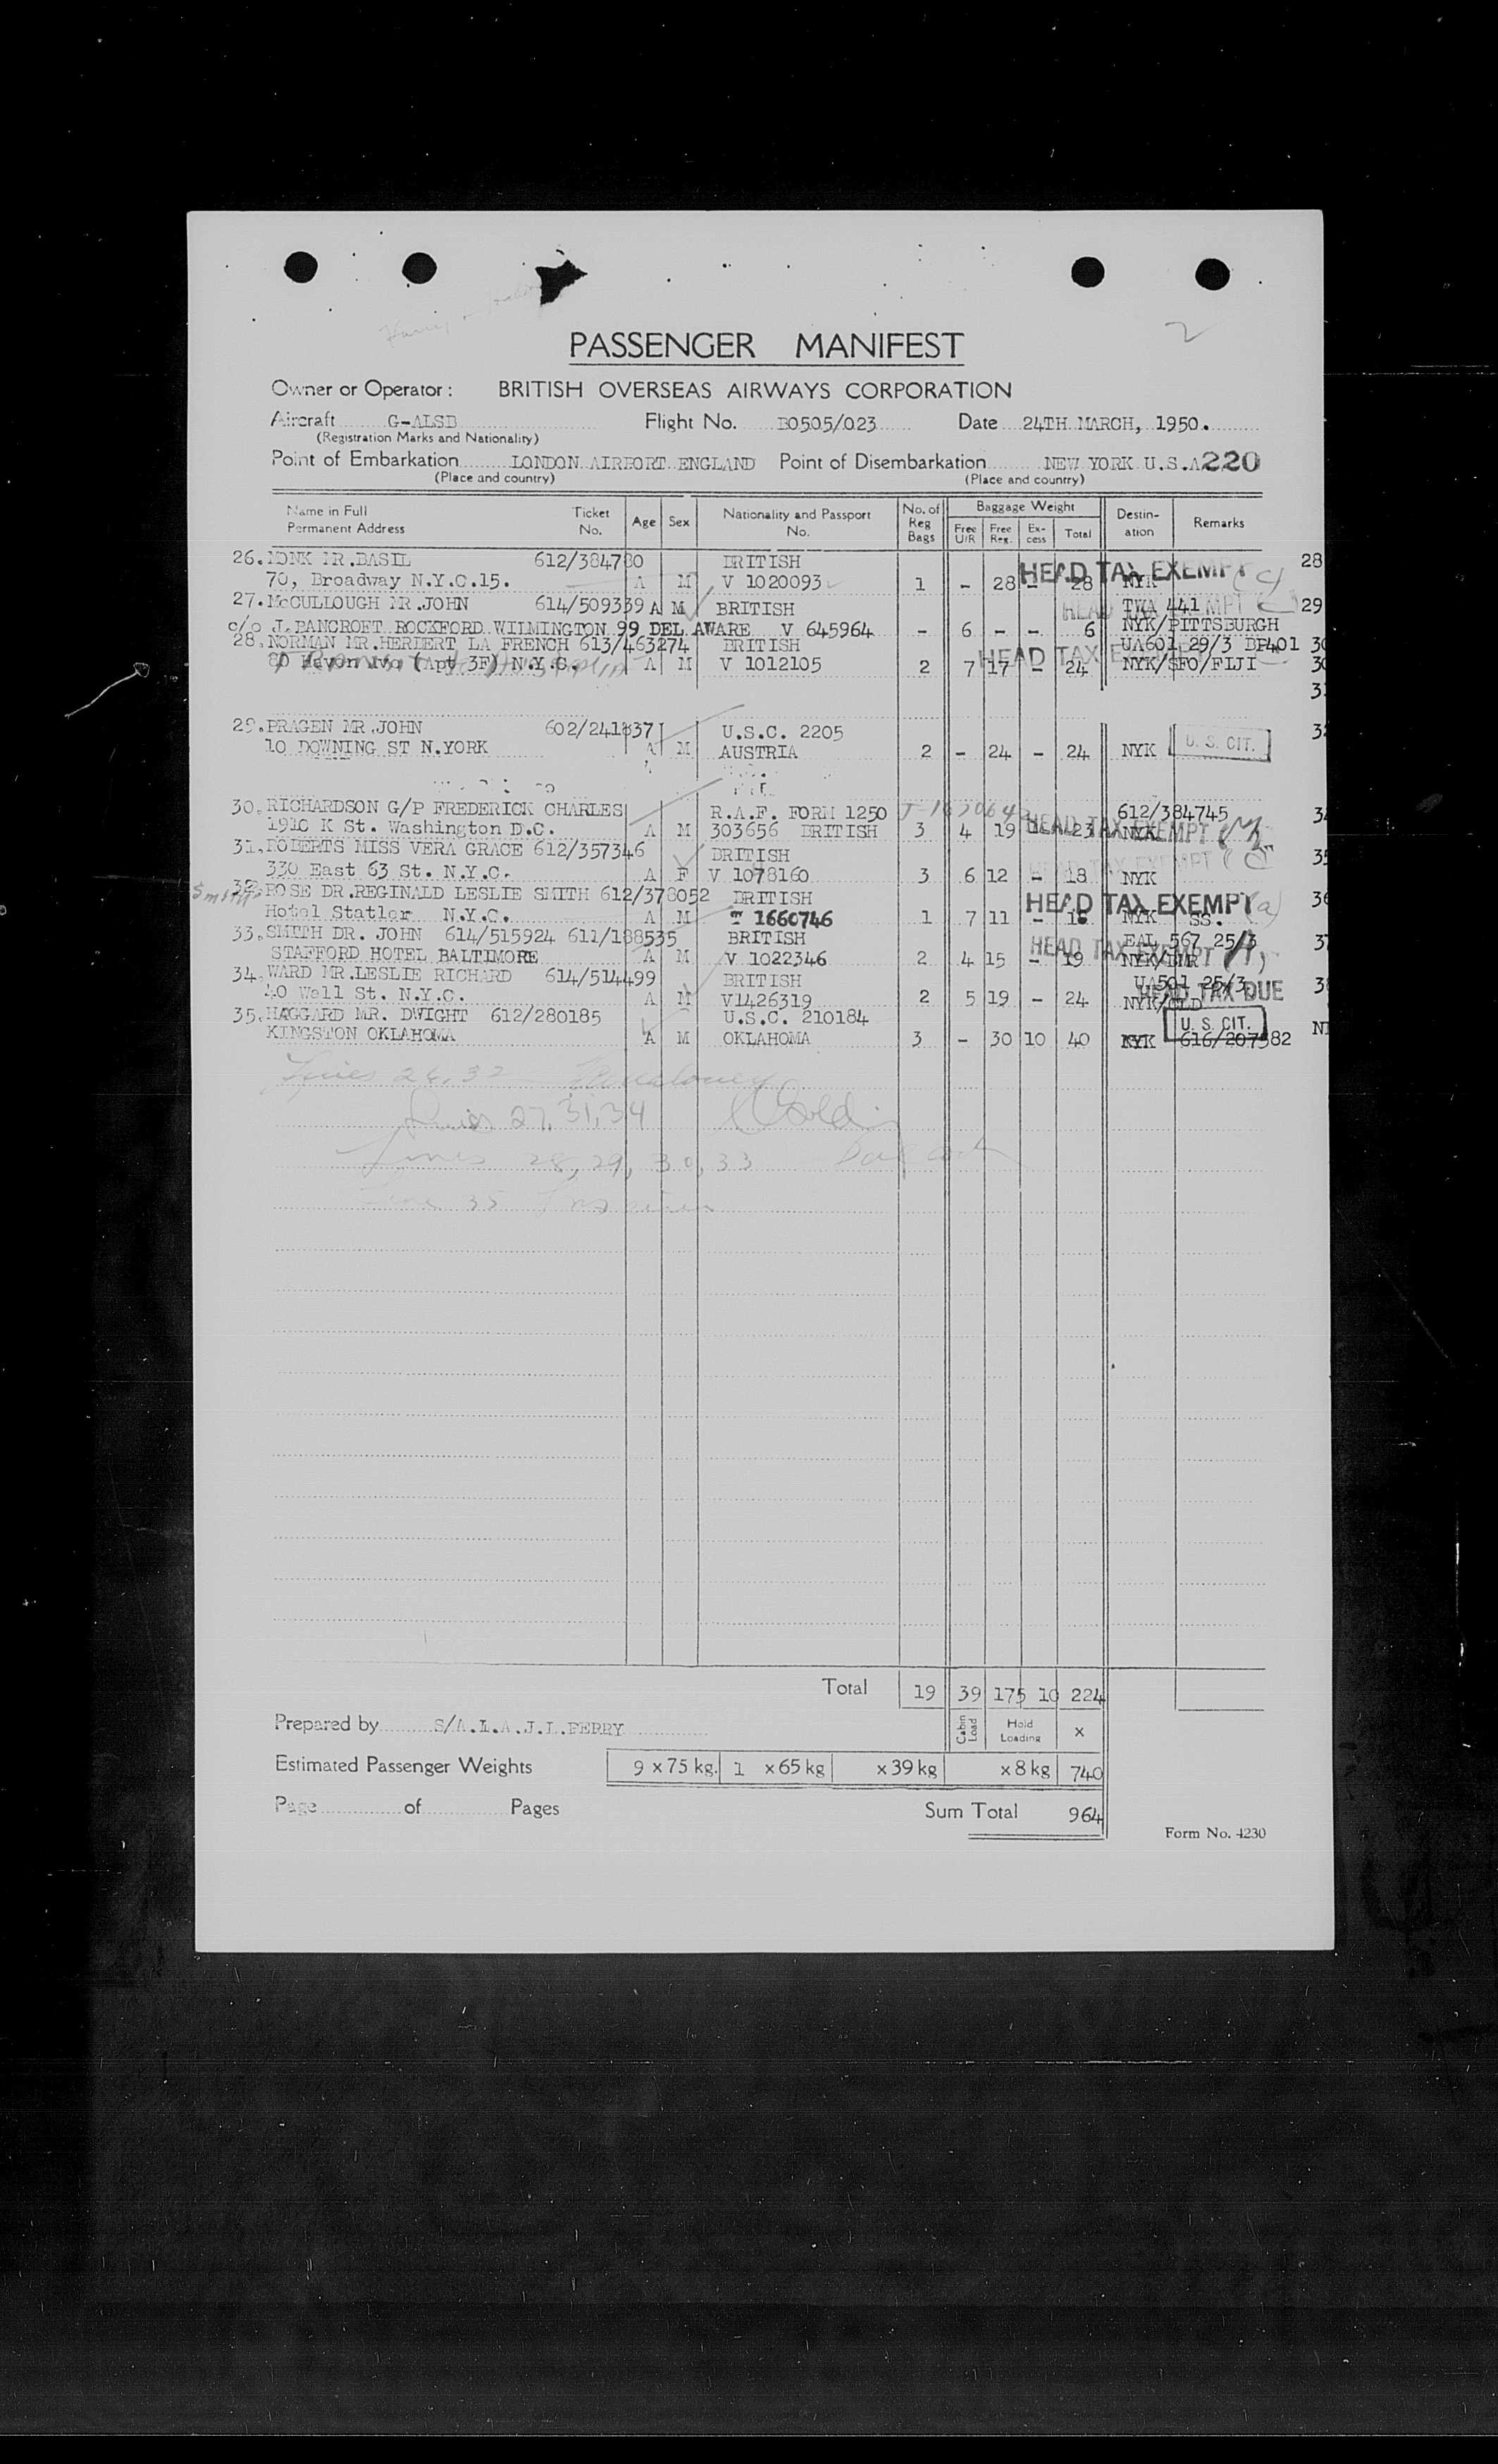 2
PASSENGER MANIFEST
Owner or Operator: BRITISH OVERSEAS AIRWAYS CORPORATION
Aircraft G-ALSB Flight No. BO505/023 Date 24TH MARCH, 1950.
(Registration Marks and Nationality)
Point of Embarkation LONDON AIRPORT ENGLAND Point of Disembarkation NEW YORK U.S.A 220
(Place and country) (Place and country)
Name in Full Permanent Address Ticket No. Age Sex Nationality and Passport No. No. of Reg Bags Baggage Weight Free U/R Free Reg. Ex-cess Total Destin-ation Remarks
26. MONK MR.BASIL 612/384780 BRITISH HEAD TAX EXEMPT (c) 28
70, Broadway N.Y.C.15. A M V 1020093 1 - 28 - 28 NYK
27. McCULLOUGH MR.JOHN 614/509339 A M BRITISH HEAD TAX EXEMPT TWA 441 29
c/o J.BANCROFT ROCKFORD WILMINGTON 99 DELAWARE V 645964 - 6 - - 6 NYK/PITTSBURGH
28. NORMAN MR.HERBERT LA FRENCH 613/463274 BRITISH UA601 29/3 BP401
(Apt 3F) N.Y.C. A M V 1012105 2 7 17 - 24 HEAD TAX NYK/SFO/FIJI
29. PRAGEN MR.JOHN 602/241837 U.S.C. 2205
10 DOWNING ST N.YORK A M AUSTRIA 2 - 24 - 24 NYK U. S. CIT.
30. RICHARDSON G/P FREDERICK CHARLES R.A.F. FORM 1250 612/384745
1910 K St. Washington D.C. A M 303656 BRITISH 3 4 19 - 23 HEAD TAX EXEMPT NYK
31. ROBERTS MISS VERA GRACE 612/357346 BRITISH
330 East 63 St. N.Y.C. A F V 1078160 3 6 12 - 18 HEAD TAX EXEMPT NYK
Smith
32. ROSE DR.REGINALD LESLIE SMITH 612/378052 BRITISH HEAD TAX EXEMPT (a)
Hotel Statler N.Y.C. A M 1660746 1 7 11 - 18 NYK SS.
33. SMITH DR. JOHN 614/515924 611/188535 BRITISH EAL 567 25/3
STAFFORD HOTEL BALTIMORE A M V 1022346 2 4 15 - 19 HEAD TAX EXEMPT
34. WARD MR.LESLIE RICHARD 614/514499 BRITISH UA501 25/3
40 Wall St. N.Y.C. A M V1426319 2 5 19 - 24 NYK/CLD HEAD TAX DUE
35. HAGGARD MR. DWIGHT 612/280185 U.S.C. 210184 U. S. CIT.
KINGSTON OKLAHOMA A M OKLAHOMA 3 - 30 10 40 NYK 616/207582
Lines 26, 32
Lines 27, 31, 34
Lines 28, 29, 30, 33
Line 35
Total 19 39 175 10 224
Prepared by S/A.L.A.J.L.PERRY Cabin Load Hold Loading x
Estimated Passenger Weights 9 x 75 kg. 1 x 65 kg x 39 kg x 8 kg 740
Page of Pages Sum Total 964
Form No. 4230